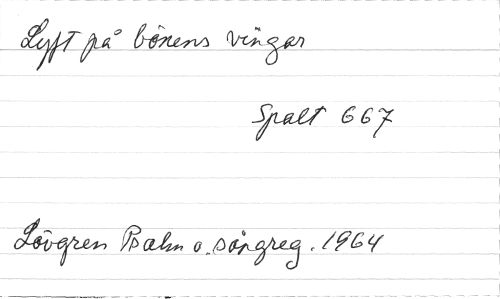 Lyft på bönens vingar
Spalt 667
Lövgren Psalm o. sångreg. 1964